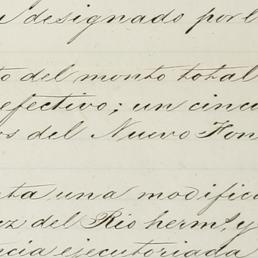 designado por l
to del monto total
efectivo; un cincu
os del Nuevo Fon
ta una modific
ez del Rio herms, y
ncia ejecutoriada